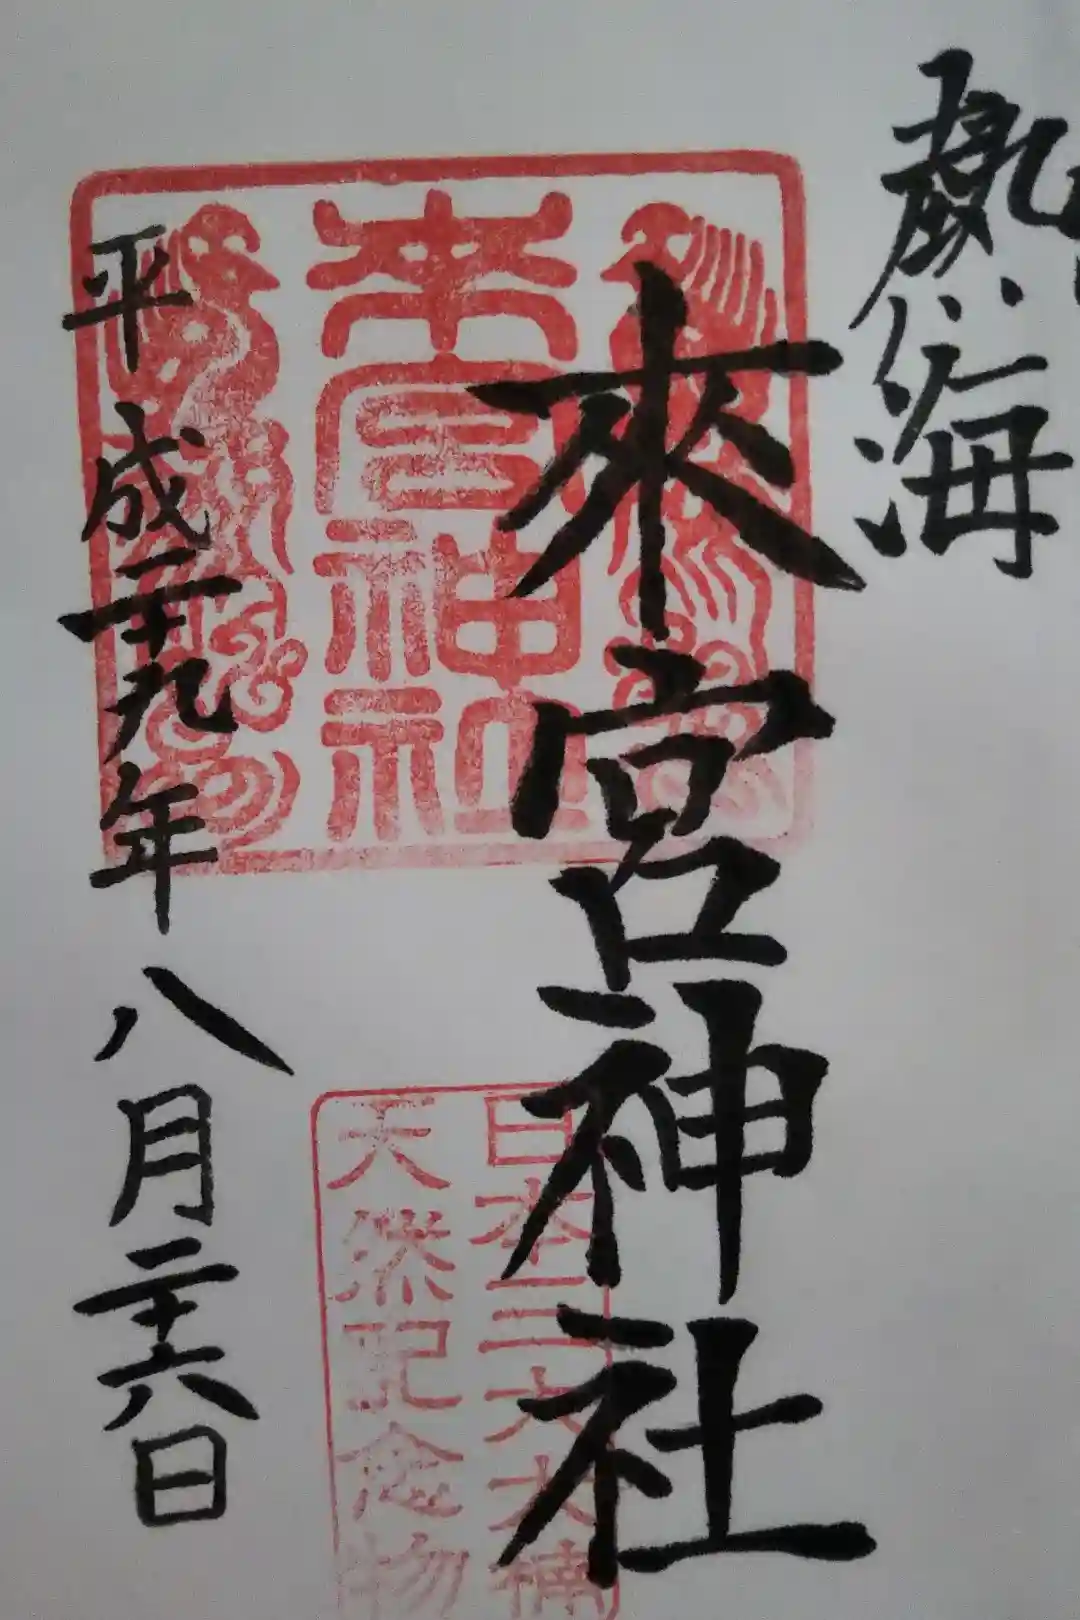 熱海
來宮神社
來宮神社
日本三大大楠
天然記念物
平成二十九年八月二十六日